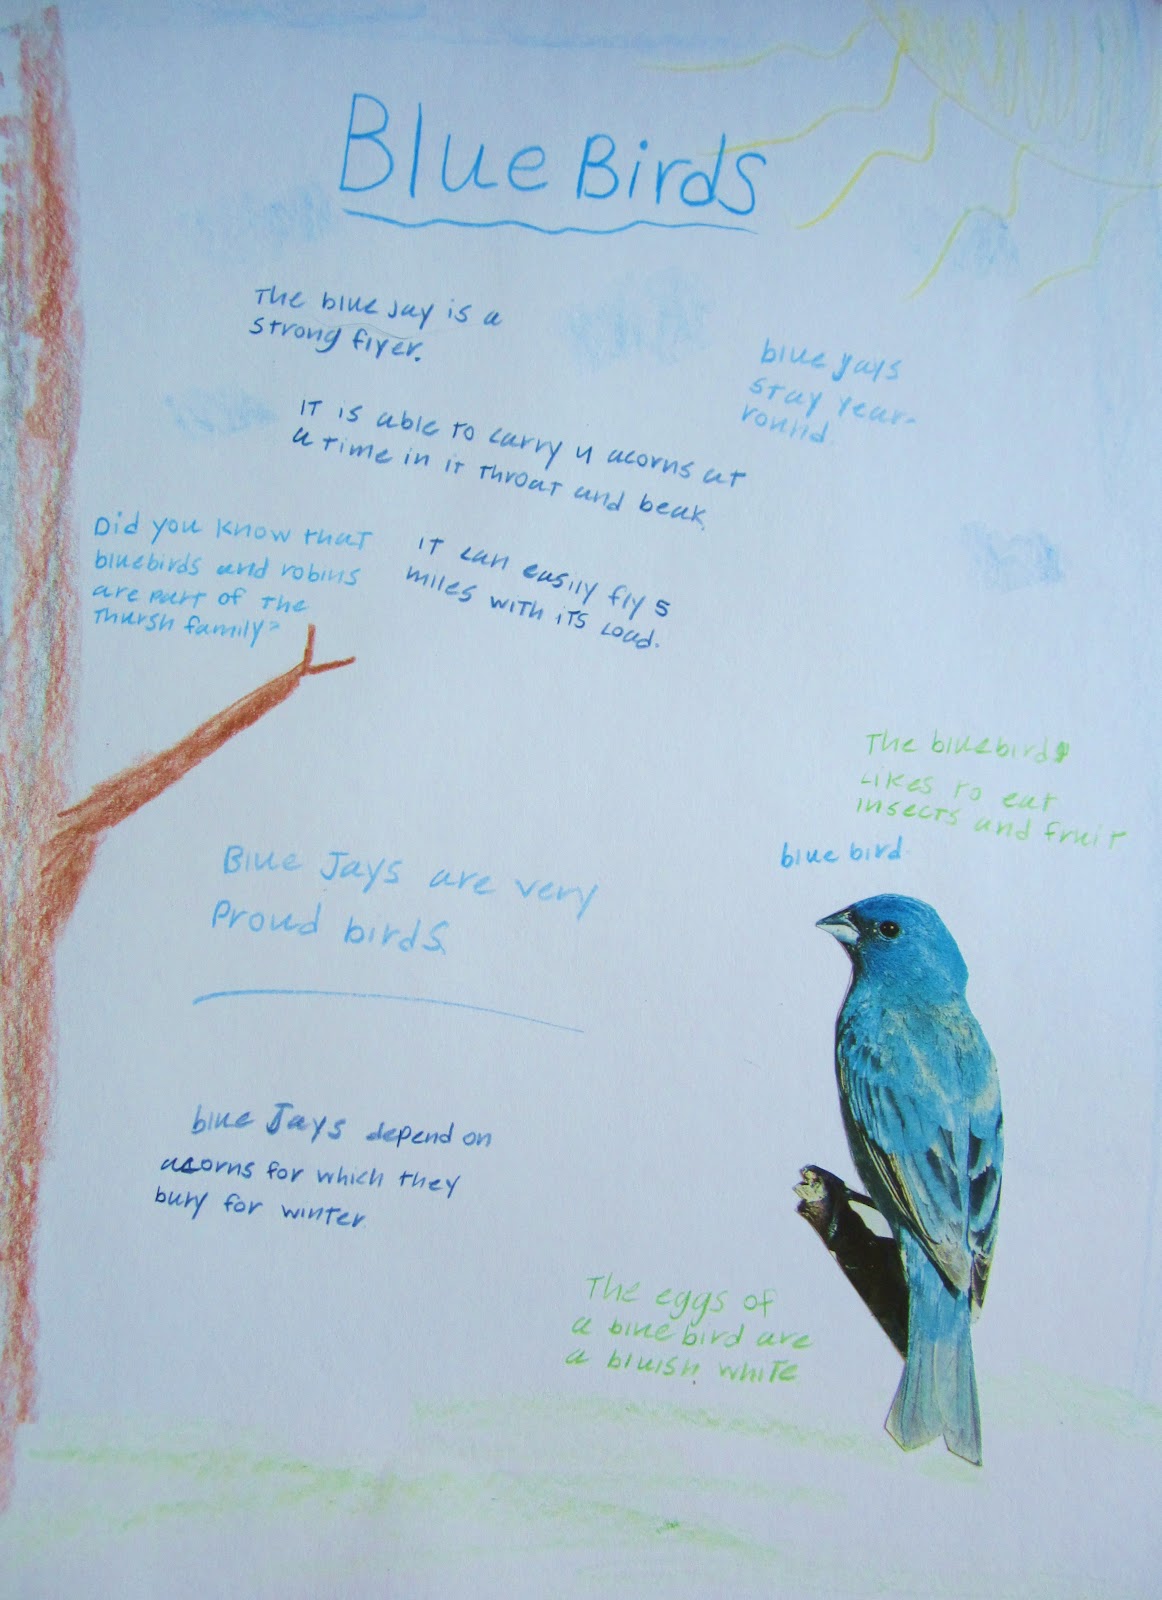 Blue Birds
The blue jay is a
strong flyer.
blue jays
stay year-
round.
It is able to carry 4 acorns at
a time in it throat and beak.
Did you know that
bluebirds and robins
are part of the
Thursh family?
It can easily fly 5
miles with its load.
The bluebird
Likes to eat
insects and fruit
blue bird.
Blue Jays are very
Proud birds.
blue Jays depend on
acorns for which they
bury for winter
The eggs of
a blue bird are
a bluish white